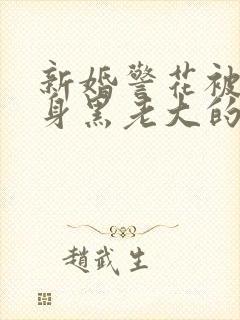 新婚警花被
身黑老大的
趙武生